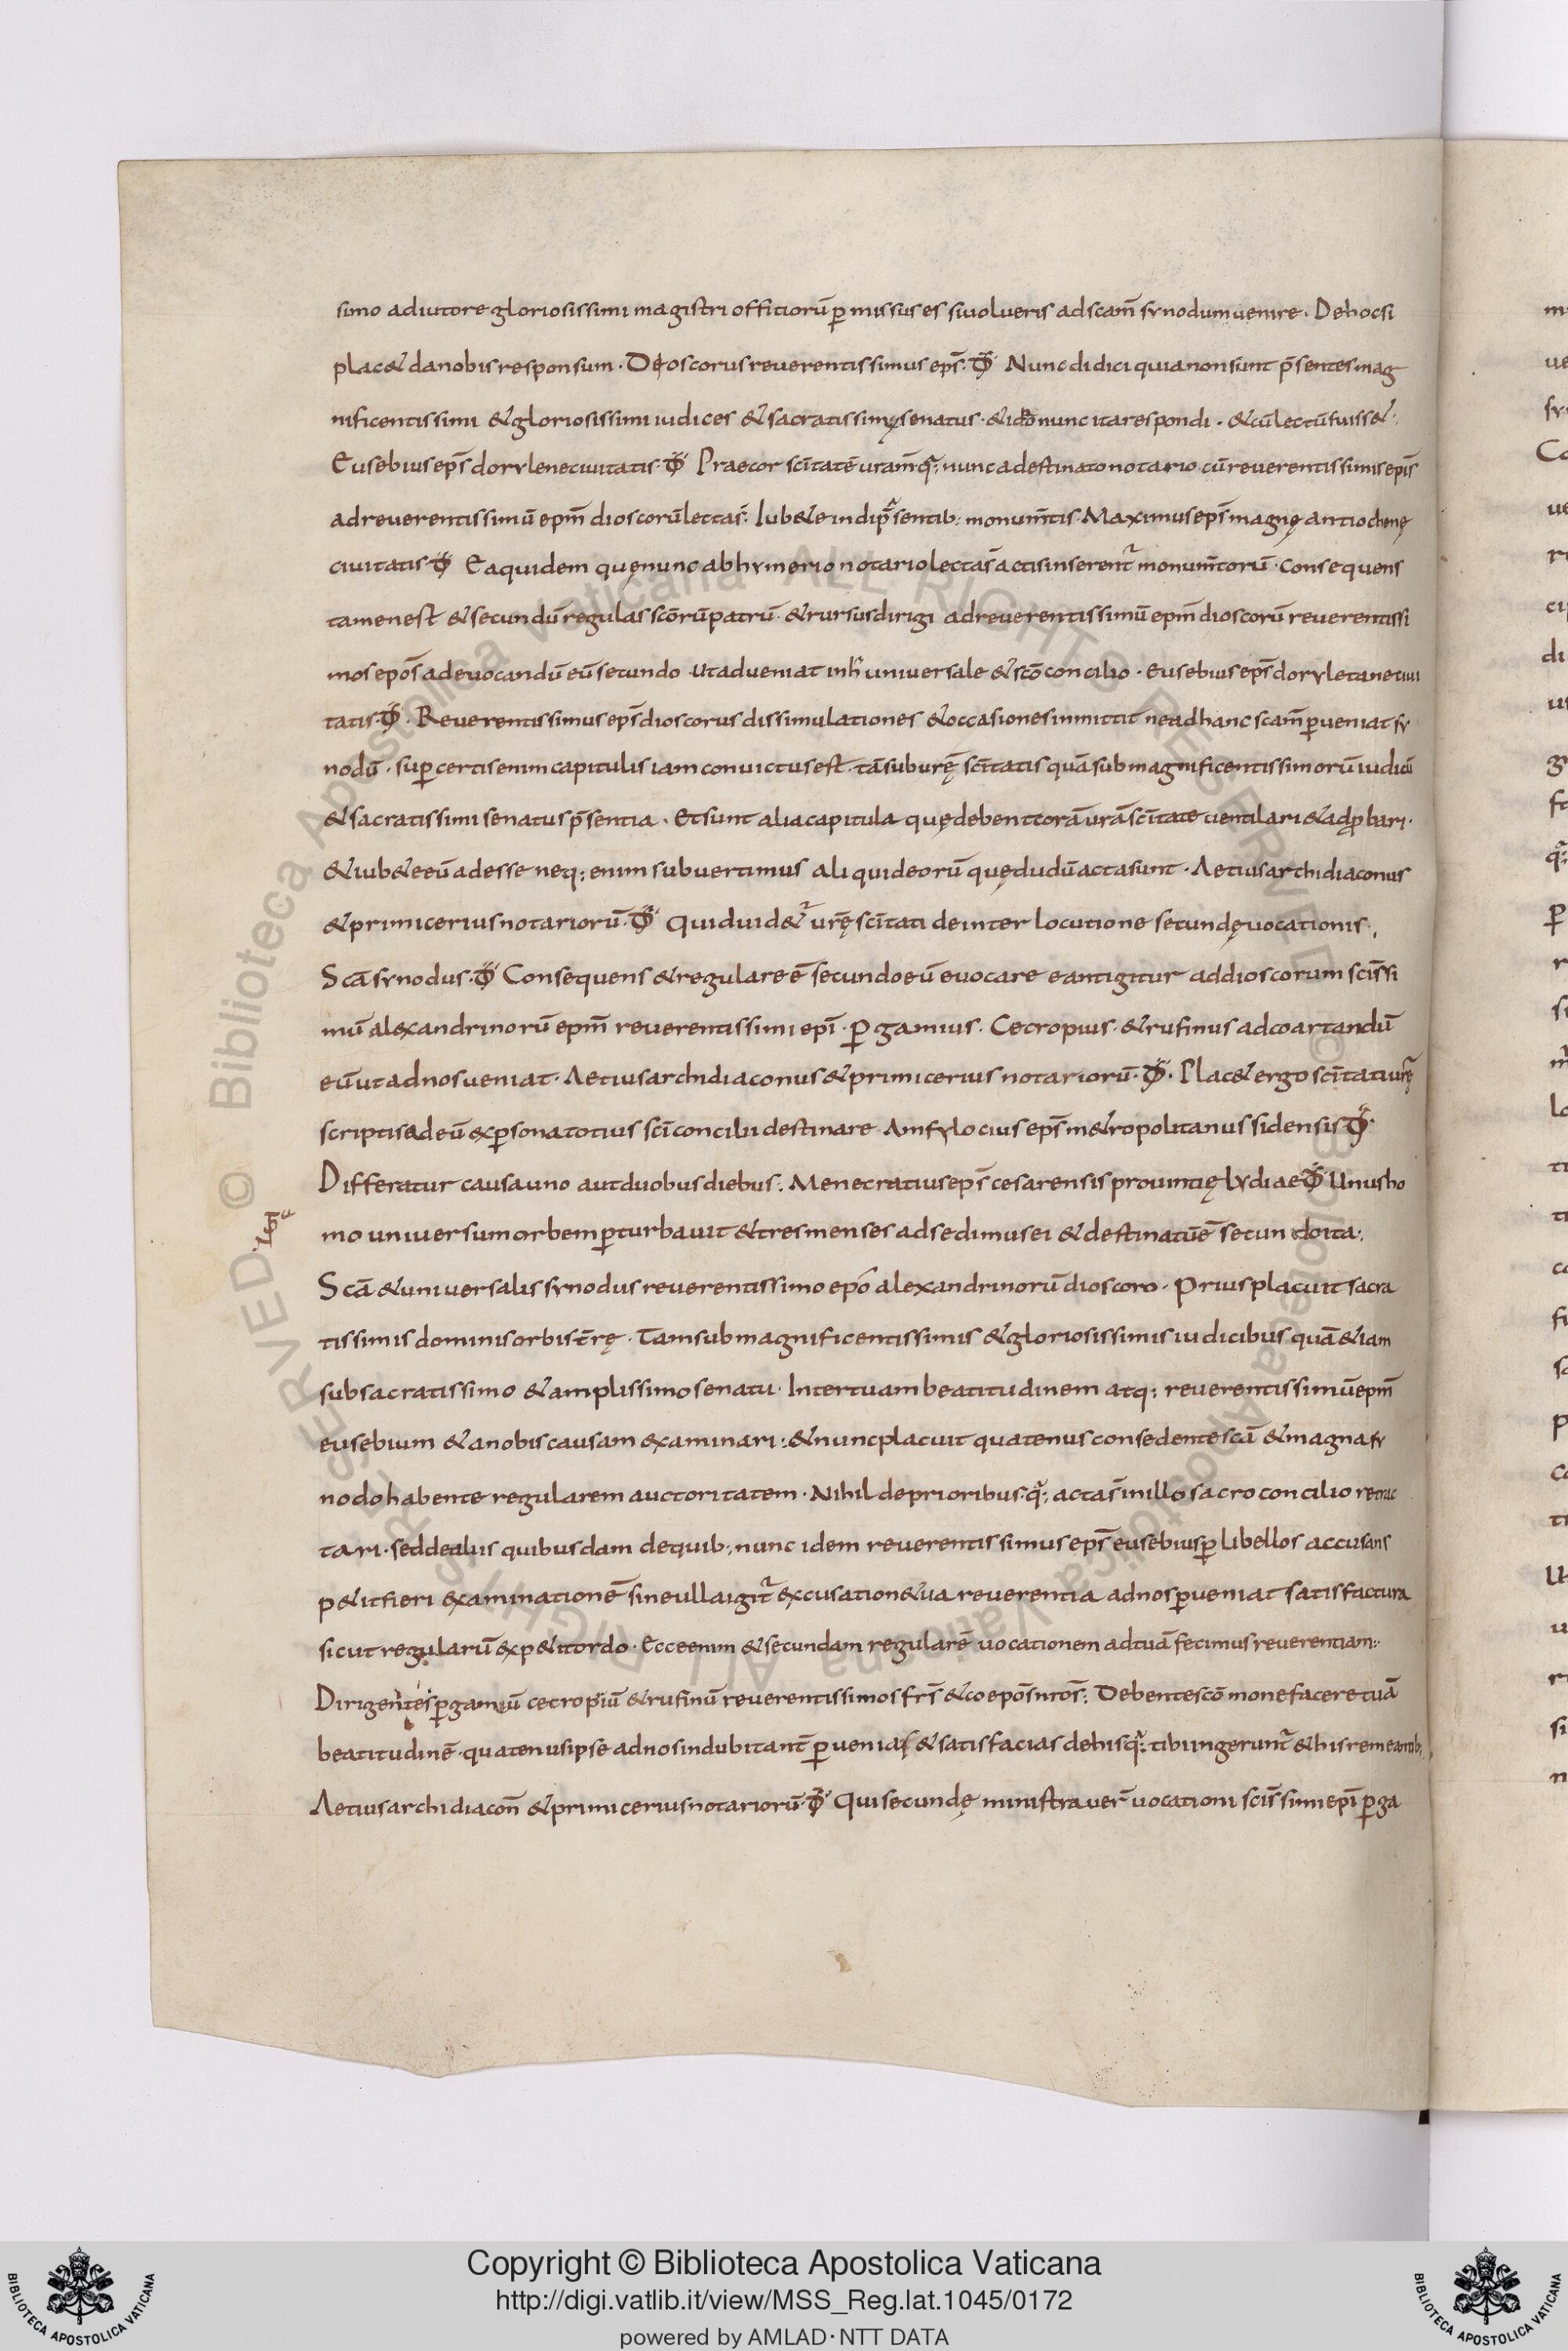 simo adiutore gloriosissimi magistri officiorū ꝑmissus es si uolueris ad scam̄ synodum uenire. De hoc si
plac& da nobis responsum. Dioscorus reuerentissimus eps̄. Nunc didici quia non sunt p̄sentes mag
nificentissimi & gloriosissimi iudices & sacratissimę senatus. & ido nunc ita respondi. & cū lectū fuiss&.
Eusebius eps̄ dorylene ciuitatis. Praecor scītatē uram̄ q: nunc a destinato notario cū reuerentissimis epīs
ad reuerentissimū epm̄ dioscorū lecta s̄. Iub&e indi p̄sentib: monum̄tis. Maximus eps̄ magnę antiochenę
ciuitatis Ea quidem quę nunc ab hymerio notario lecta s̄ actis inserent̄ monum̄torū. Consequens
tamen est & secundū regulas scōrū patrū. & rursus dirigi ad reuerentissimū epm̄ dioscorū reuerentissi
mos epos̄ ad euocandū eū secundo. ut adueniat in h̄ uniuersale & scō concilio. Eusebius eps̄ doryletane ciui
tatis. Reuerentissimus eps̄ dioscorus dissimulationes & occasiones inmittit ne ad hanc scam̄ ꝑueniat sy
nodū. suꝑ certis enim capitulis iam conuictus est. tā sub urę̄ scītatis quā sub magnificentissimorū iudicū
& sacratissimi senatus p̄sentia. Et sunt alia capitula quę debent corā urā scītate uentilari & adꝓbari.
& iub&e eū adesse neq: enim subuertimus aliquid eorū quę dudū acta sunt. Aetius archidiaconus
& primicerius notariorū. Quid uid&̄ urę̄ scītati de interlocutione secundę uocationis.
Scā synodus. Consequens & regulare ē secundo eū euocare eant igitur ad dioscorum scis̄si
mū alexandrinorū epm̄ reuerentissimi epī. ꝑgamius. Cecropius. & rufinus ad coartandū
eū ut ad nos ueniat. Aetius archidiaconus & primicerius notariorū. Plac& ergo scītati urę̄
scriptis ad eū ex ꝑsona totius scī concilii destinare. Amfylocius eps̄ m&ropolitanus sidensis
Differatur causa uno aut duobus diebus. Menecratius eps̄ cesarensis prouintię lydiae Unus ho
mo uniuersum orbem ꝑturbauit & tres menses adsedimus ei & destinatū ē secundo ita.
Scā & uniuersalis synodus reuerentissimo epō alexandrinorū dioscoro. Prius placuit sacra
tissimis dominis orbis tr̄ę. Tam sub magnificentissimis & gloriosissimis iudicibus quā &iam
sub sacratissimo & amplissimo senatu. Inter tuam beatitudinem atq: reuerentissimū epm̄
eusebium & a nobis causam examinari: & nunc placuit quatenus consedente scā & magna sy
nodo habente regularem auctoritatem. Nihil de prioribus q: acta s̄ in illo sacro concilio retrac
tari. sed de aliis quibusdam de quib: nunc idem reuerentissimus eps̄ eusebius ꝑ libellos accusans
p&it fieri examinationē sine ulla igit̄ excusatione tua reuerentia ad nos ꝑueniat satisfactura
sicut regularū exp&it ordo. Ecce enim & secundam regularē uocationem ad tuā fecimus reuerentiam:
Dirigentes ꝑgamiū cecropiū & rufinū reuerentissimos frs̄ & coepos̄ nros̄. Debentes cōmonefacere tuā
beatitudinē. quatenus ipse ad nos indubitant̄ ꝑuenias & satisfacias de his q: tibi ingerunt̄ & his remeantib:
Aetius archidiacon̄ & primicerius notariorū. Qui secundę ministrauer̄ uocationi scis̄simi epī ꝑga
Copyright © Biblioteca Apostolica Vaticana
http://digi.vatlib.it/view/MSS_Reg.lat.1045/0172
powered by AMLAD·NTT DATA